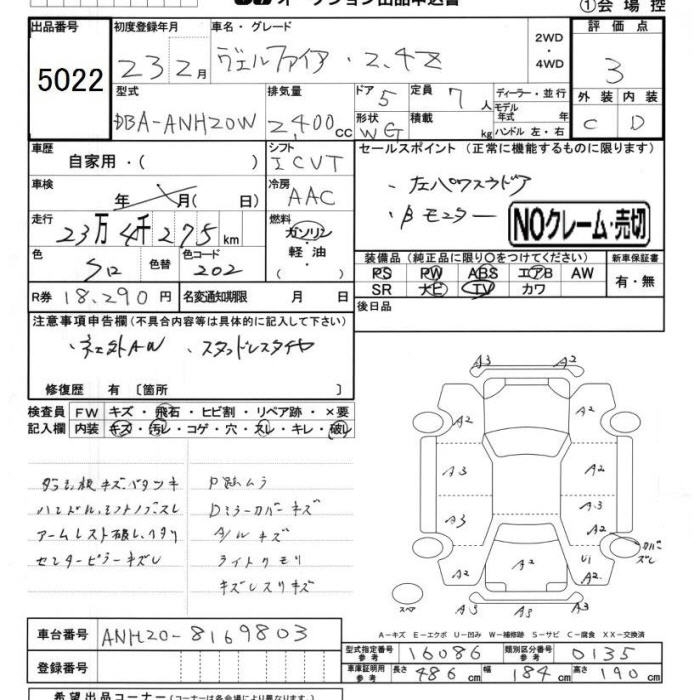 ①会場控
出品番号
5022
初度登録年月
23 2月
車名・グレード
ヴェルファイア・2.4Z
2WD
・
4WD
評価点
3
型式
DBA-ANH20W
排気量
2400cc
ドア
5
形状
WG
定員
7人
積載
kg
ディーラー・並行
モデル年式 年
ハンドル 左・右
外装
C
内装
D
車歴
自家用・( )
シフト
ICVT
車検
年 月(日)
冷房
AAC
走行
23万4千275km
燃料
ガソリン
・
軽油
色
S12
色替
色コード
202
R券 18,290円
名変通知期限 月 日
セールスポイント (正常に機能するものに限ります)
・左パワスラドア
・Bモニター
NOクレーム・売切
装備品(純正品に限り○をつけてください)
PS PW ABS エアB AW
SR ナビ TV カワ
新車保証書
有・無
後日品
注意事項申告欄(不具合内容等は具体的に記入して下さい)
・社外AW ・スタッドレスタイヤ
修復歴 有〔箇所 〕
検査員記入欄
FW キズ・飛石・ヒビ割・リペア跡・×要
内装 キズ・汚レ・コゲ・穴・スレ・キレ・破レ
ダッシュ板キズ.ベタツキ
ハンドル、シフトノブスレ
アームレスト破レ、ヘタリ
センターピラーキズレ
P跡ムラ
Dミラーカバーキズ
A/Wキズ
ライトクモリ
キズレスリキズ
A3 A2
A2 A2
A3 A2
A3 A2
A3
A2 A2 U1 A2
A2 A3 A2
カバースレ
スペア
A-キズ E-エクボ U-凹み W-補修跡 S-サビ C-腐食 XX-交換済
車台番号
ANH20-8169803
登録番号
型式指定番号 参考
16086
類別区分番号 参考
0135
車庫証明用 参考
長さ 486cm 幅 184cm 高さ 190cm
希望出品コーナー(コーナーは各会場により異なります)